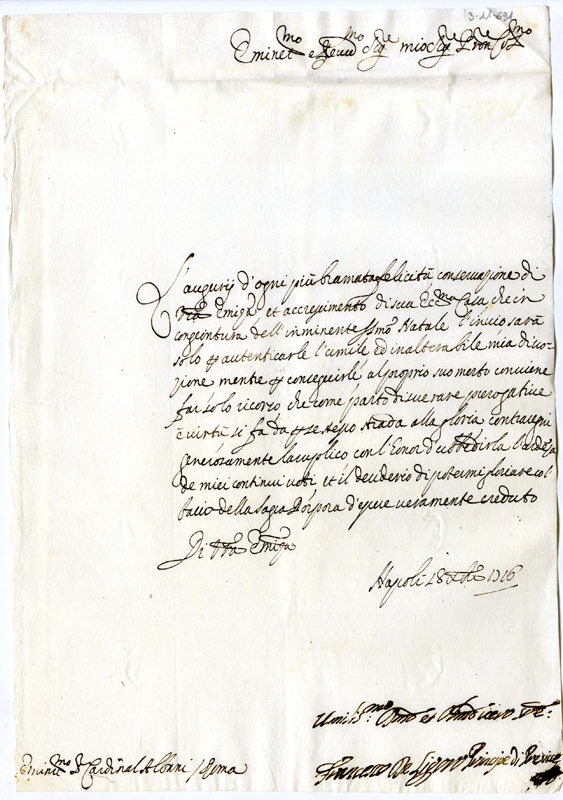 3-11-691
Eminet.mo e Reuer.mo Sig.re mio Sig.re Pron Col.mo
L'augurij d'ogni più bramata felicità conseruazione di
Vra Emiza et accrescimento di sua Ecc.ma Casa che in
congiontura dell'inminente S.mo Natale l'inuio sarà
solo p autenticarle l'umile ed inalterabile mia diuo-
zione mentre p conseguirle al proprio suo merto conuiene
far solo ricorso che come parto di sue rare prerogatiue
e uirtù si fà da p se stesso strada alla gloria contracegni
generosamente la supplico con l'Eonor d'ubbidirla l'ardenza
de miei continui uoti et il desiderio di potermi gloriare col
bacio della Sagra Porpora d'essere ueramente creduto
Di Vra Emiza
Napoli 18 Xbre 1716
Umiliss.mo Deuo et Obligo seruo
Emin.mo S Cardinal Albani / Roma
De Liguoro Principe di